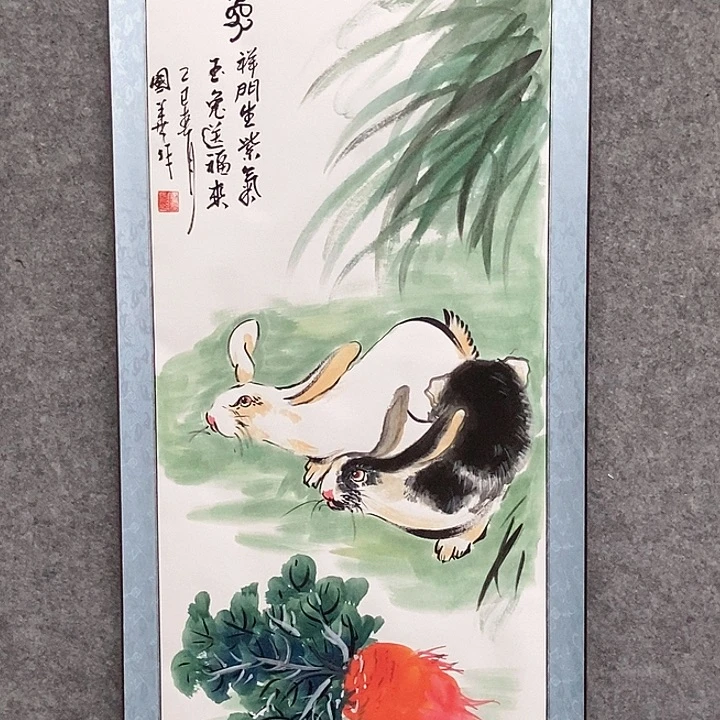 祥門生紫氣
玉兔送福來
乙巳春月
國華作